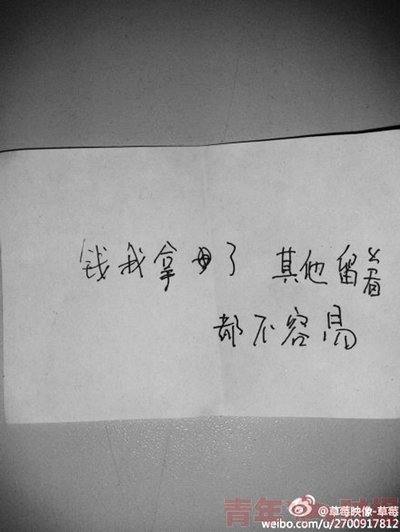 钱我拿了 其他留着
都不容易
青年时报
@草莓映像-草莓
weibo.com/u/2700917812